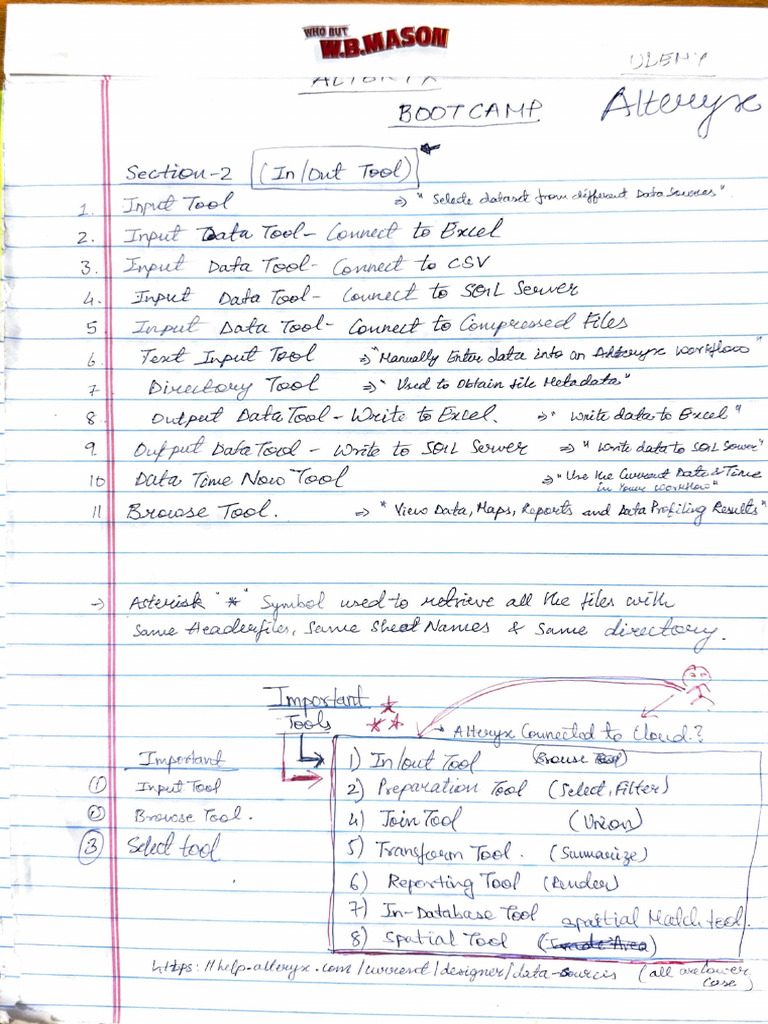 WHO BUT
W.B.MASON
UDEMY
ALTERYX
BOOTCAMP Alteryx
Section-2 (In/Out Tool)
1. Input Tool ⇒ "Selecte dataset from different Data Sources".
2. Input Data Tool- Connect to Excel
3. Input Data Tool- Connect to CSV
4. Input Data Tool- Connect to SQL Server
5. Input Data Tool- Connect to Compressed Files
6. Text Input Tool ⇒ "Manually Enter data into an Alteryx workflow
7. Directory Tool ⇒ "Used to Obtain file Metadata"
8. Output Data Tool - Write to Excel. ⇒ "Write data to Excel"
9. Output Data Tool - Write to SQL Server ⇒ "Write data to SQL Server"
10 Data Time Now Tool ⇒ "Use the Current Date & Time
in Your workflow"
11 Browse Tool. ⇒ "View Data, Maps, Reports and Data Profiling Results"
→ Asterisk "*" Symbol used to retrieve all the files with
Same Headerfiles, Same Sheet Names & Same directory.
Important
Tools
→ Alteryx Connected to Cloud.?
Important
① Input Tool
② Browse Tool.
③ Select tool
1) In/out Tool (Browse Tool)
2) Preparation Tool (Select, Filter)
4) Join Tool (Union)
5) Transform Tool. (Summarize)
6) Reporting Tool (Render)
7) In-Database Tool spatial Match tool.
8) Spatial Tool
https://help.alteryx.com/current/designer/data-sources (all are lower
case)